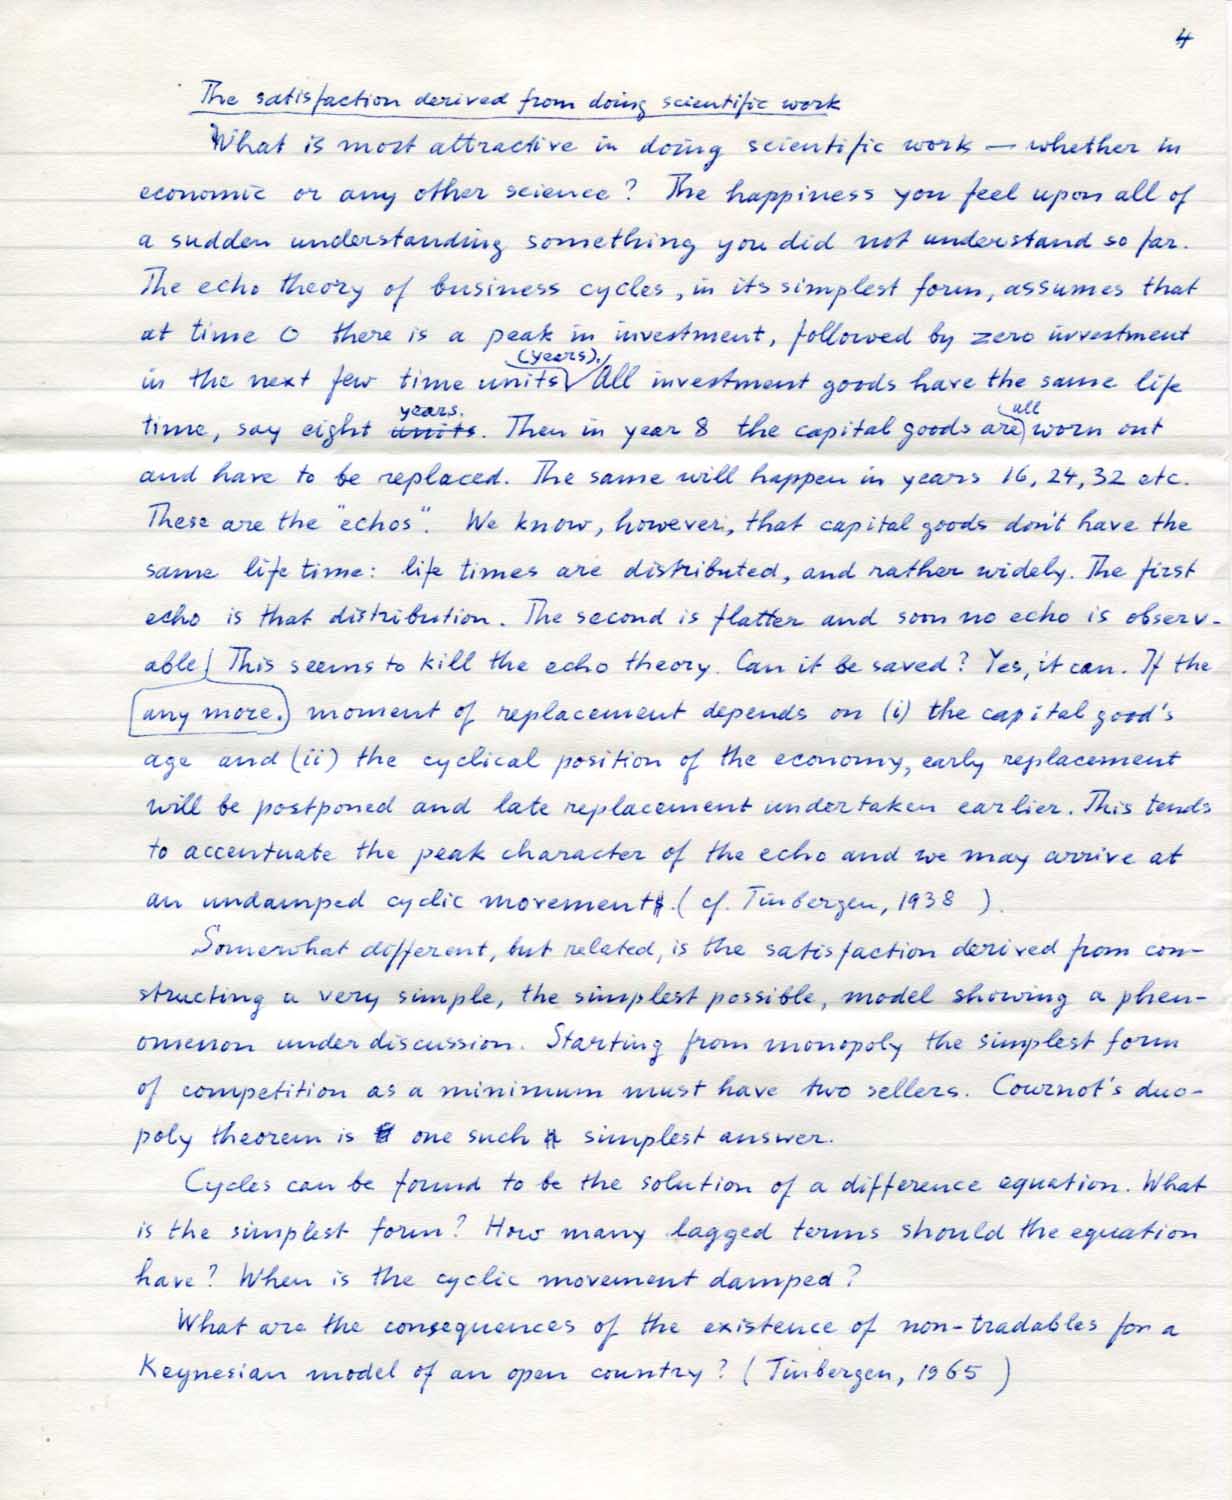 4
The satisfaction derived from doing scientific work
What is most attractive in doing scientific work — whether in
economic or any other science? The happiness you feel upon all of
a sudden understanding something you did not understand so far.
The echo theory of business cycles, in its simplest form, assumes that
at time 0 there is a peak in investment, followed by zero investment
in the next few time units (years). All investment goods have the same life
time, say eight units years. Then in year 8 the capital goods are all worn out
and have to be replaced. The same will happen in years 16, 24, 32 etc.
These are the "echos". We know, however, that capital goods don't have the
same life time: life times are distributed, and rather widely. The first
echo is that distribution. The second is flatter and soon no echo is observ-
able This seems to kill the echo theory. Can it be saved? Yes, it can. If the
any more. moment of replacement depends on (i) the capital good's
age and (ii) the cyclical position of the economy, early replacement
will be postponed and late replacement undertaken earlier. This tends
to accentuate the peak character of the echo and we may arrive at
an undamped cyclic movement. (cf. Tinbergen, 1938 ).
Somewhat different, but related, is the satisfaction derived from con-
structing a very simple, the simplest possible, model showing a phen-
omenon under discussion. Starting from monopoly the simplest form
of competition as a minimum must have two sellers. Cournot's duo-
poly theorem is one such simplest answer.
Cycles can be found to be the solution of a difference equation. What
is the simplest form? How many lagged terms should the equation
have? When is the cyclic movement damped?
What are the consequences of the existence of non-tradables for a
Keynesian model of an open country? (Tinbergen, 1965 )